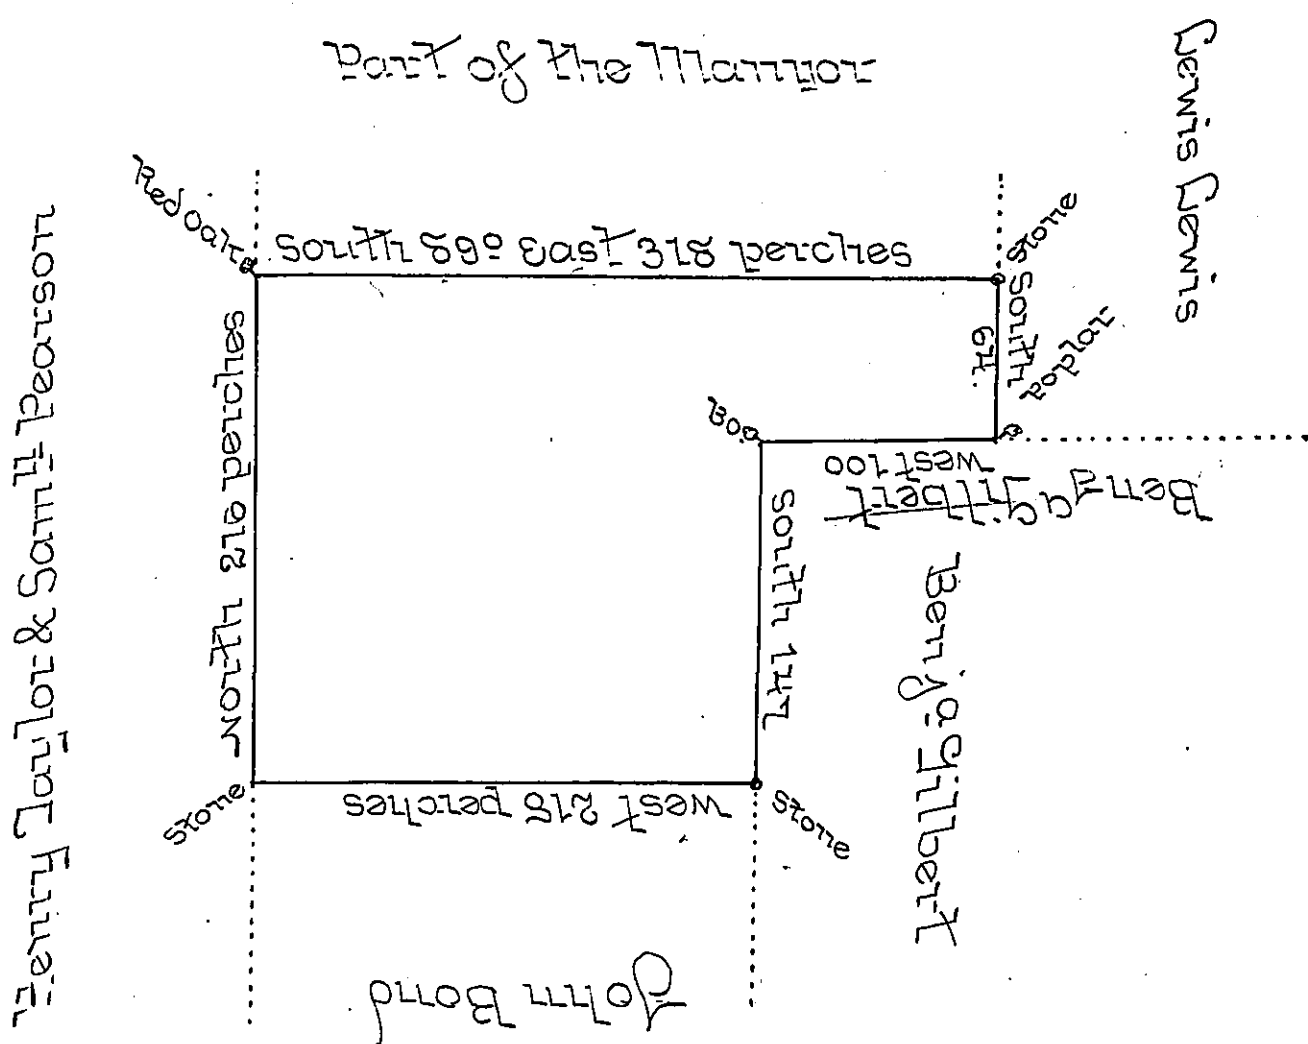 Part of the Mannor
Lewis Lewis
Red Oak
South 89º East 318 perches
Stone
South
64.
Poplar
Bo
West 100
Benj a Gilbert
South 147
Benja Gillbert
North 212 perches
West 218 perches
Stone
Stone
John Bond
Henry Taylor & Samll Pearson